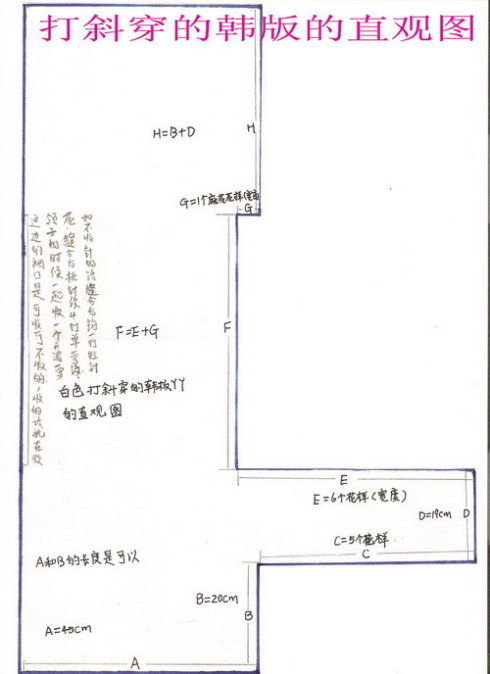 打斜穿的韩版的直观图
H=B+D
H
G=1个麻花花样(宽度
G
如不收针的话缝合后钩一行短针
花,缝合后挑针织4行单罗纹
领子的时候一起收一个
这边的领口是可收可不收的,收的话就在收
F=E+G
F
白色打斜穿的韩板丫丫
的直观图
E
E=6个花样(宽度)
D=19cm
D
C=5个花样
C
A和B的长度是可以
B=20cm
B
A=45cm
A